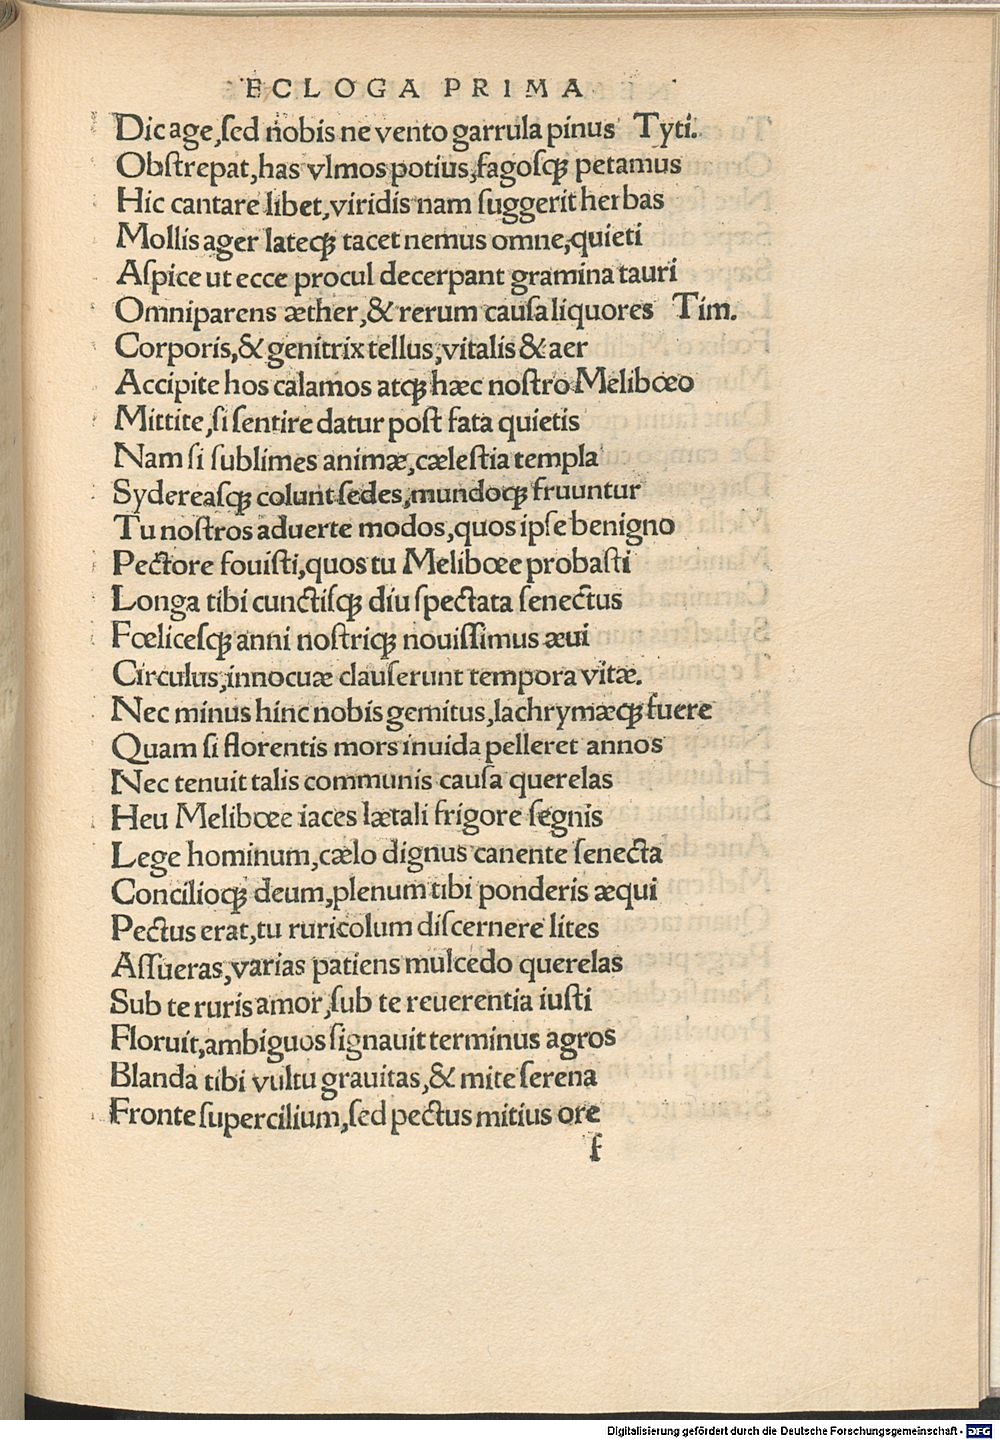 ECLOGA PRIMA
Dic age,ſed nobis ne vento garrula pinus Tyti.
Obſtrepat,has vlmos potius,fagoſqꝫ petamus
Hic cantare libet,viridis nam ſuggerit herbas
Mollis ager lateqꝫ tacet nemus omne,quieti
Aſpice ut ecce procul decerpant gramina tauri
Omniparens æther,& rerum cauſa liquores Tim.
Corporis,& genitrix tellus,vitalis & aer
Accipite hos calamos atqꝫ hæc noſtro Melibœo
Mittite,ſi ſentire datur poſt fata quietis
Nam ſi ſublimes animæ,cæleſtia templa
Sydereaſqꝫ colunt ſedes,mundoqꝫ fruuntur
Tu noſtros aduerte modos,quos ipſe benigno
Pectore fouiſti,quos tu Melibœe probaſti
Longa tibi cunctiſqꝫ diu ſpectata ſenectus
Fœliceſqꝫ anni noſtriqꝫ nouiſſimus æui
Circulus,innocuæ clauſerunt tempora vitæ.
Nec minus hinc nobis gemitus,lachrymæqꝫ fuere
Quam ſi florentis mors inuida pelleret annos
Nec tenuit talis communis cauſa querelas
Heu Melibœe iaces lætali frigore ſegnis
Lege hominum,cælo dignus canente ſenecta
Concilioqꝫ deum,plenum tibi ponderis æqui
Pectus erat,tu ruricolum diſcernere lites
Aſſueras,varias patiens mulcedo querelas
Sub te ruris amor,ſub te reuerentia iuſti
Floruit,ambiguos ſignauit terminus agros
Blanda tibi vultu grauitas,& mite ſerena
Fronte ſupercilium,ſed pectus mitius ore
f
Digitalisierung gefördert durch die Deutsche Forschungsgemeinschaft - DFG